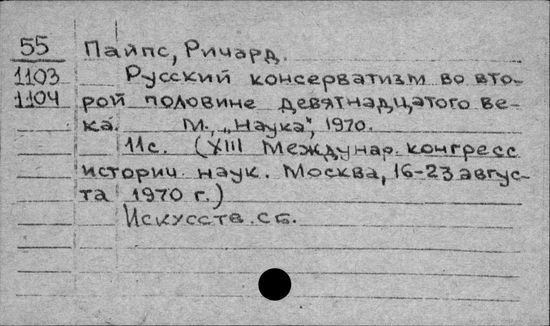 55 Пайпс, Ричард.
1103 Русский консерватизм во вто-
1104 рой половине девятнадцатого ве-
ка. М., „Наука", 1970.
11с. (XIII Междунар. конгресс
историч. наук. Москва, 16-23 авгус-
та 1970 г.)
Искусств. сб.